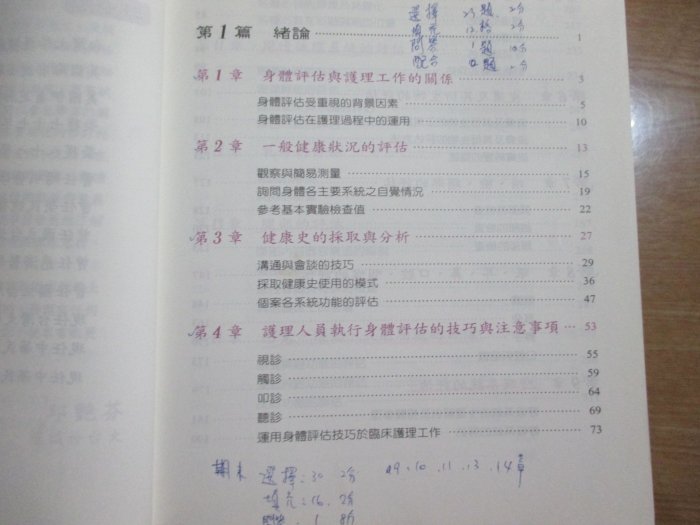 選擇 23題. 2分
填充 12格 2分
問答 1題 10分
配合 題 2分
第1篇 緒論 1
第1章 身體評估與護理工作的關係 3
身體評估受重視的背景因素 5
身體評估在護理過程中的運用 10
第2章 一般健康狀況的評估 13
觀察與簡易測量 15
詢問身體各主要系統之自覺情況 19
參考基本實驗檢查值 22
第3章 健康史的採取與分析 27
溝通與會談的技巧 29
採取健康史使用的模式 36
個案各系統功能的評估 47
第4章 護理人員執行身體評估的技巧與注意事項 … 53
視診 55
觸診 59
叩診 64
聽診 69
運用身體評估技巧於臨床護理工作 73
期末 選擇:30 2分 9.10.11.13.14章
填充:16. 2分
1 8分